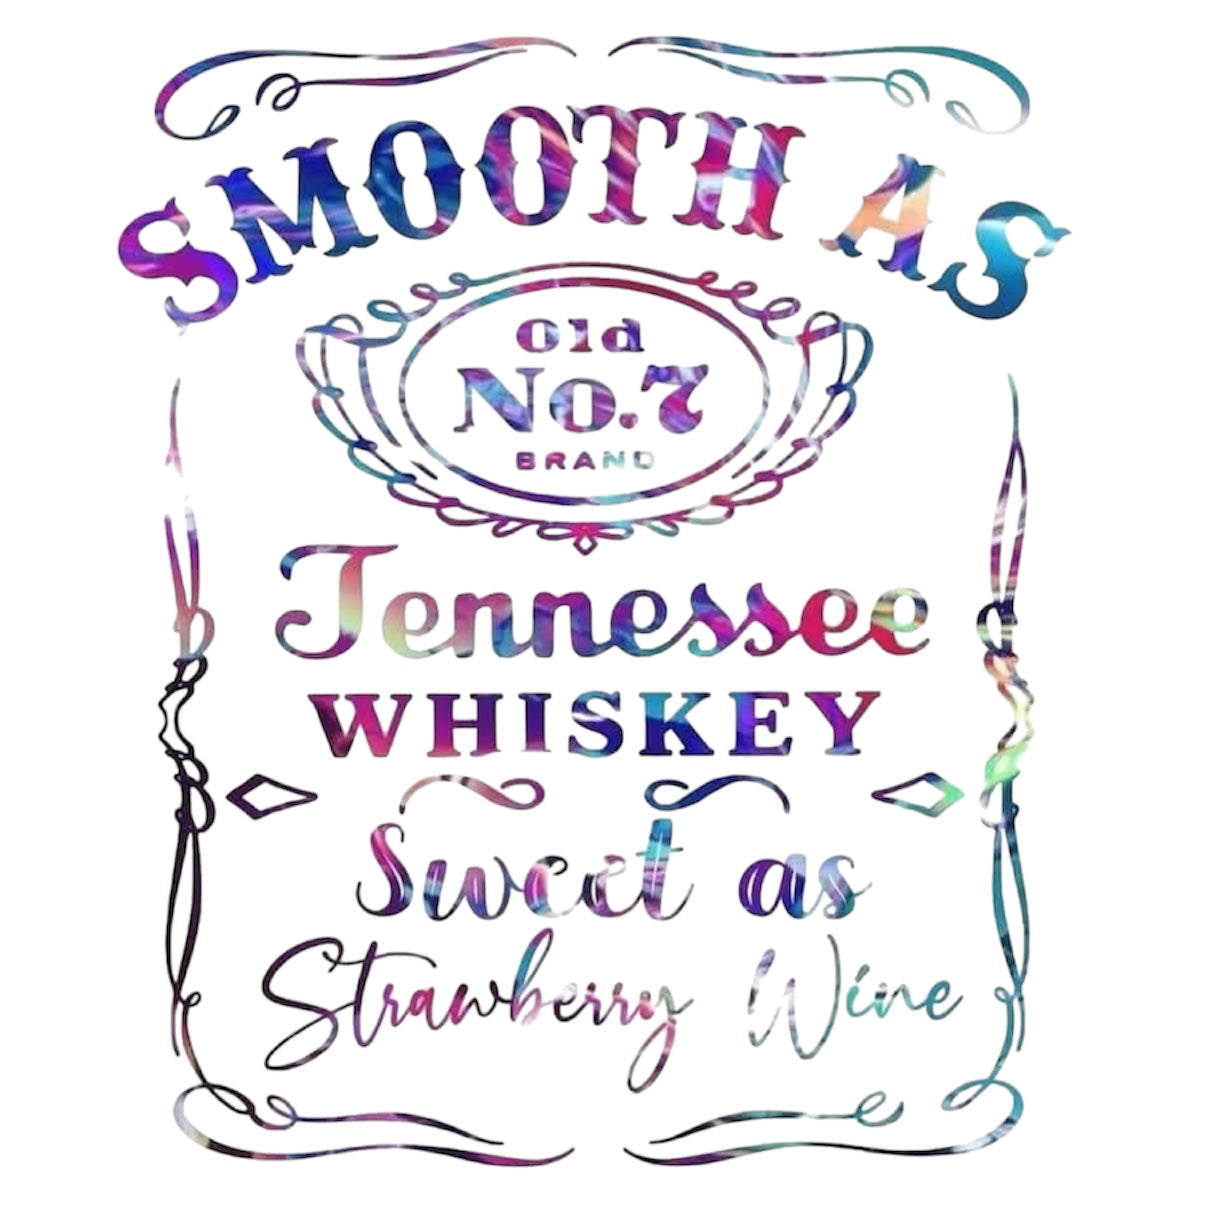 SMOOTH AS
Old
No.7
BRAND
Tennessee
WHISKEY
Sweet as
Strawberry Wine